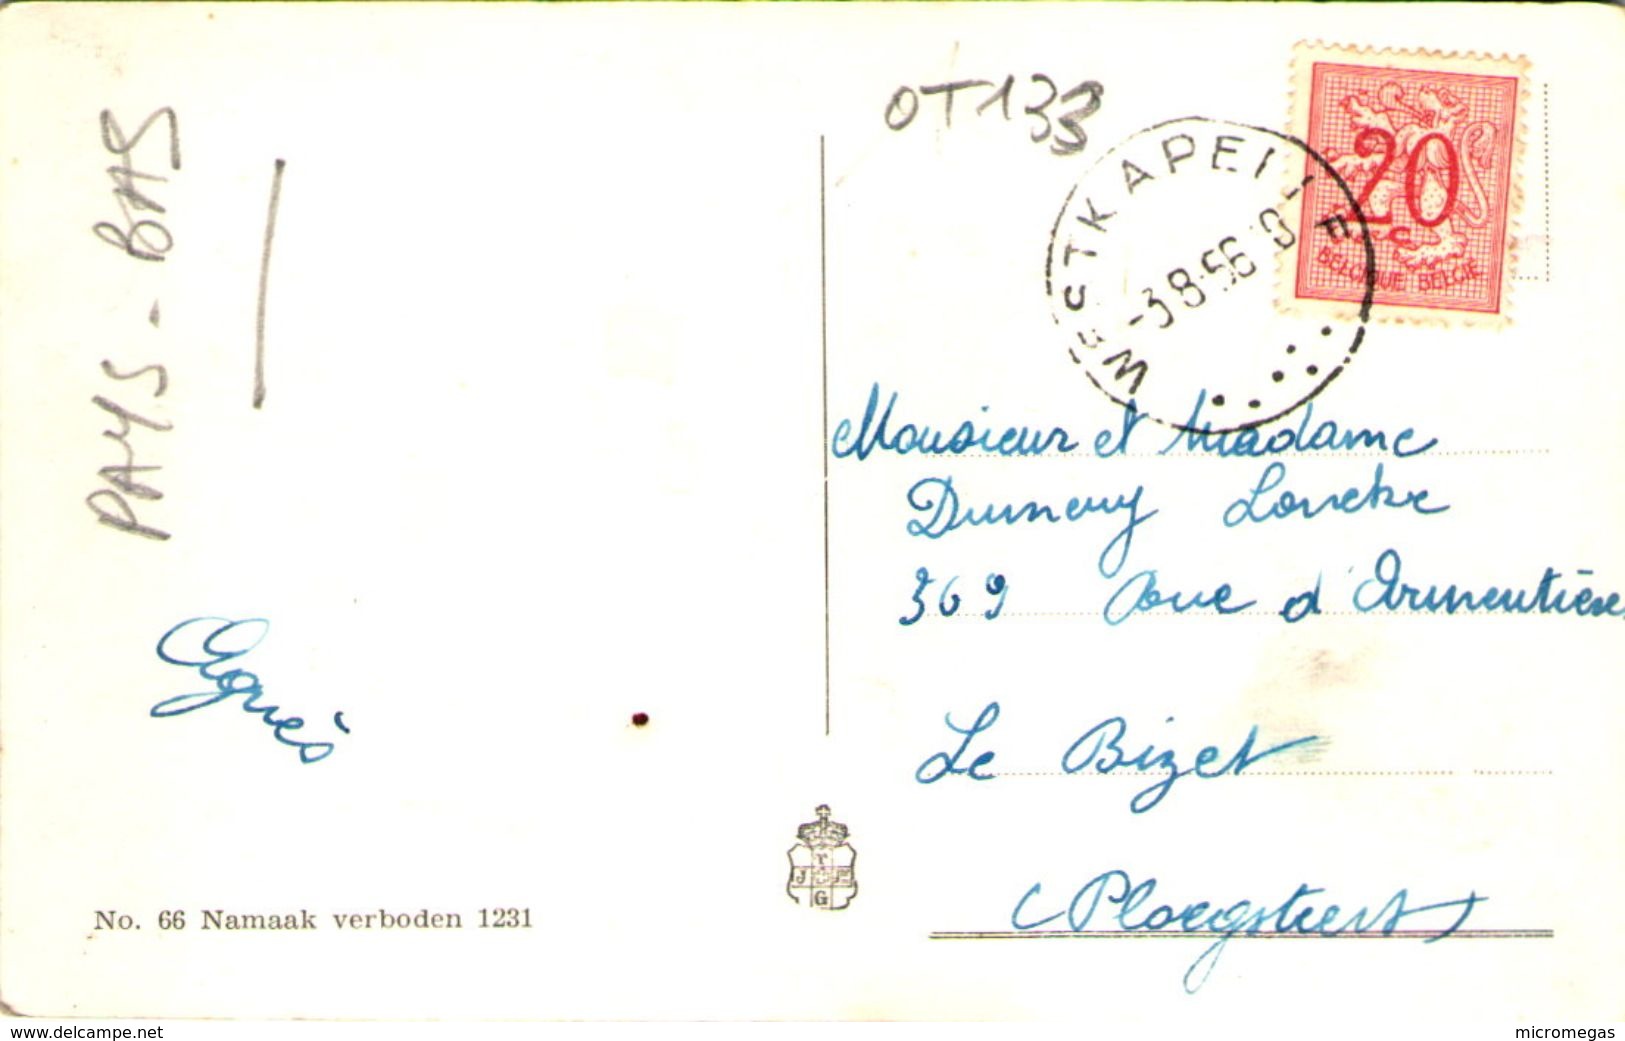 PAYS - BAS
OT133
WESTKAPELLE
-3.8.56
20
BELGIQUE BELGIE
Monsieur et Madame
Dumery
369 Rue d'Armentières
Le Bizet
(Ploegsteert)
Agnès
No. 66 Namaak verboden 1231
www.delcampe.net
micromegas